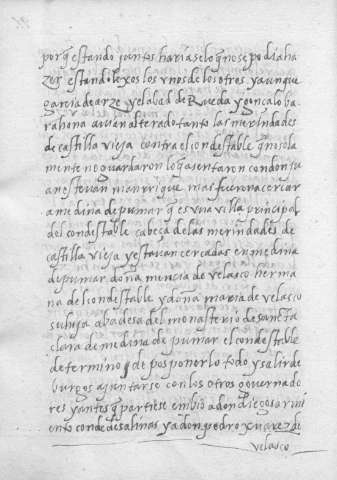 porq̃ estando juntos haríaselo q̃ no se podia ha
zer estando lexos los vnos de los otros y aunque
garcia de arze y el abad de Rueda y gonçalo ba
rahona avian alterado tanto las merindades
de castilla vieja contra el condestable que no sola
mente no guardaron lo q̃ asentaron con don ju
an estevan manrrique mas fueron a cercar
a medina de pumar q̃ es vna villa principal
del condestable cabeça de las merindades de
castilla vieja y estavan cercadas en medina
de pumar doña mencia de velasco herma
na del condestable y doña maria de velasco
su hija abadesa del monasterio de sancta
clara de medina de pumar el condestable
determino de posponerlo todo y salir de
burgos a juntarse con los otros governado
res y antes q̃ partiese embio a don diego sarmi
ento conde de salinas y a don pedro xuarez de
velasco